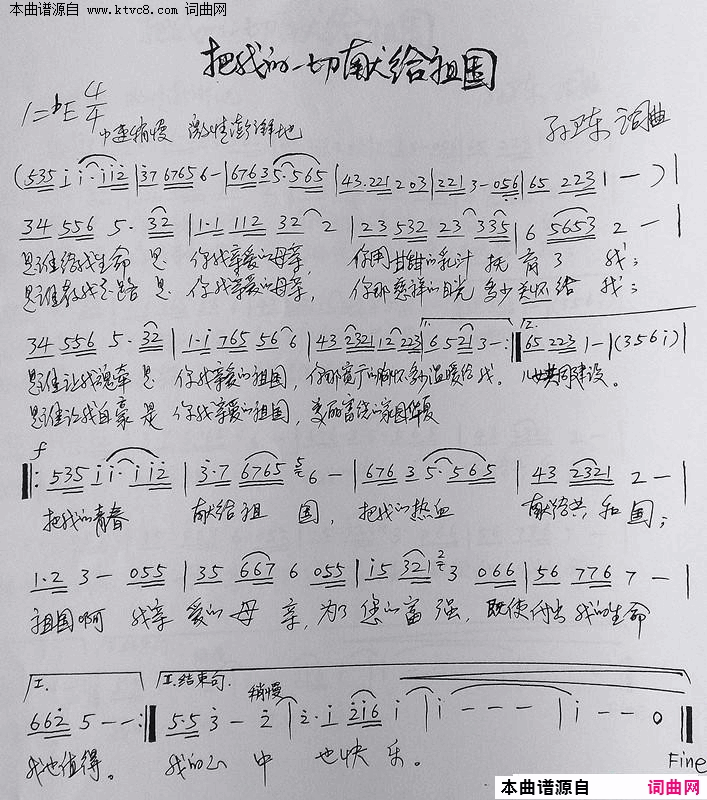 本曲谱源自 www.ktvc8.com 词曲网
把我的一切献给祖国
1=bE 4/4
中速稍慢 激情澎湃地
孙卫东 词曲
(535 i i·i i i2 | 37 6765 6- | 676 3 5·565 | 43·221 2 03 | 221 3-056 | 65 223 | 1 - ) |
34 556 5· 32 | 1·1 112 32 2 | 23 532 23 335 | 6 5653 2 - |
是谁给我生命 是 你我亲爱的母亲, 你用甘甜的乳汁 抚育了 我;
是谁教我走路 是 你我亲爱的母亲, 你那慈祥的目光 多少关怀给 我;
34 556 5· 32 | 1·i 765 56 6 | 43 2321 12 223 | 1. 6 521 3 - :| 2. 65 223 1 - | (356i) |
是谁让我魂牵 是 你我亲爱的祖国, 你那宽广的胸怀多少温暖给我。 儿女共同建设。
是谁让我自豪 是 你我亲爱的祖国, 美丽富饶的家园华夏
f
|: 535 i i·i i i2 | 3·7 6765 5 6 - | 676 3 5·565 | 43 2321 2 - |
把我的青春 献给祖 国, 把我的热血 献给共 和国;
1·2 3 - 055 | 35 667 6 055 | i5 321 2 3 066 | 56 776 7 - |
祖国啊 我亲 爱的母 亲, 为了 您的富 强, 既使付出 我的生命
I. II.结束句. 稍慢
662 5 - - :| 5·5 3 - 2 | 2·i 2i6 i | i - - - | i - - 0 |
我也值得。 我的心 中 也快 乐。
Fine
本曲谱源自 词曲网